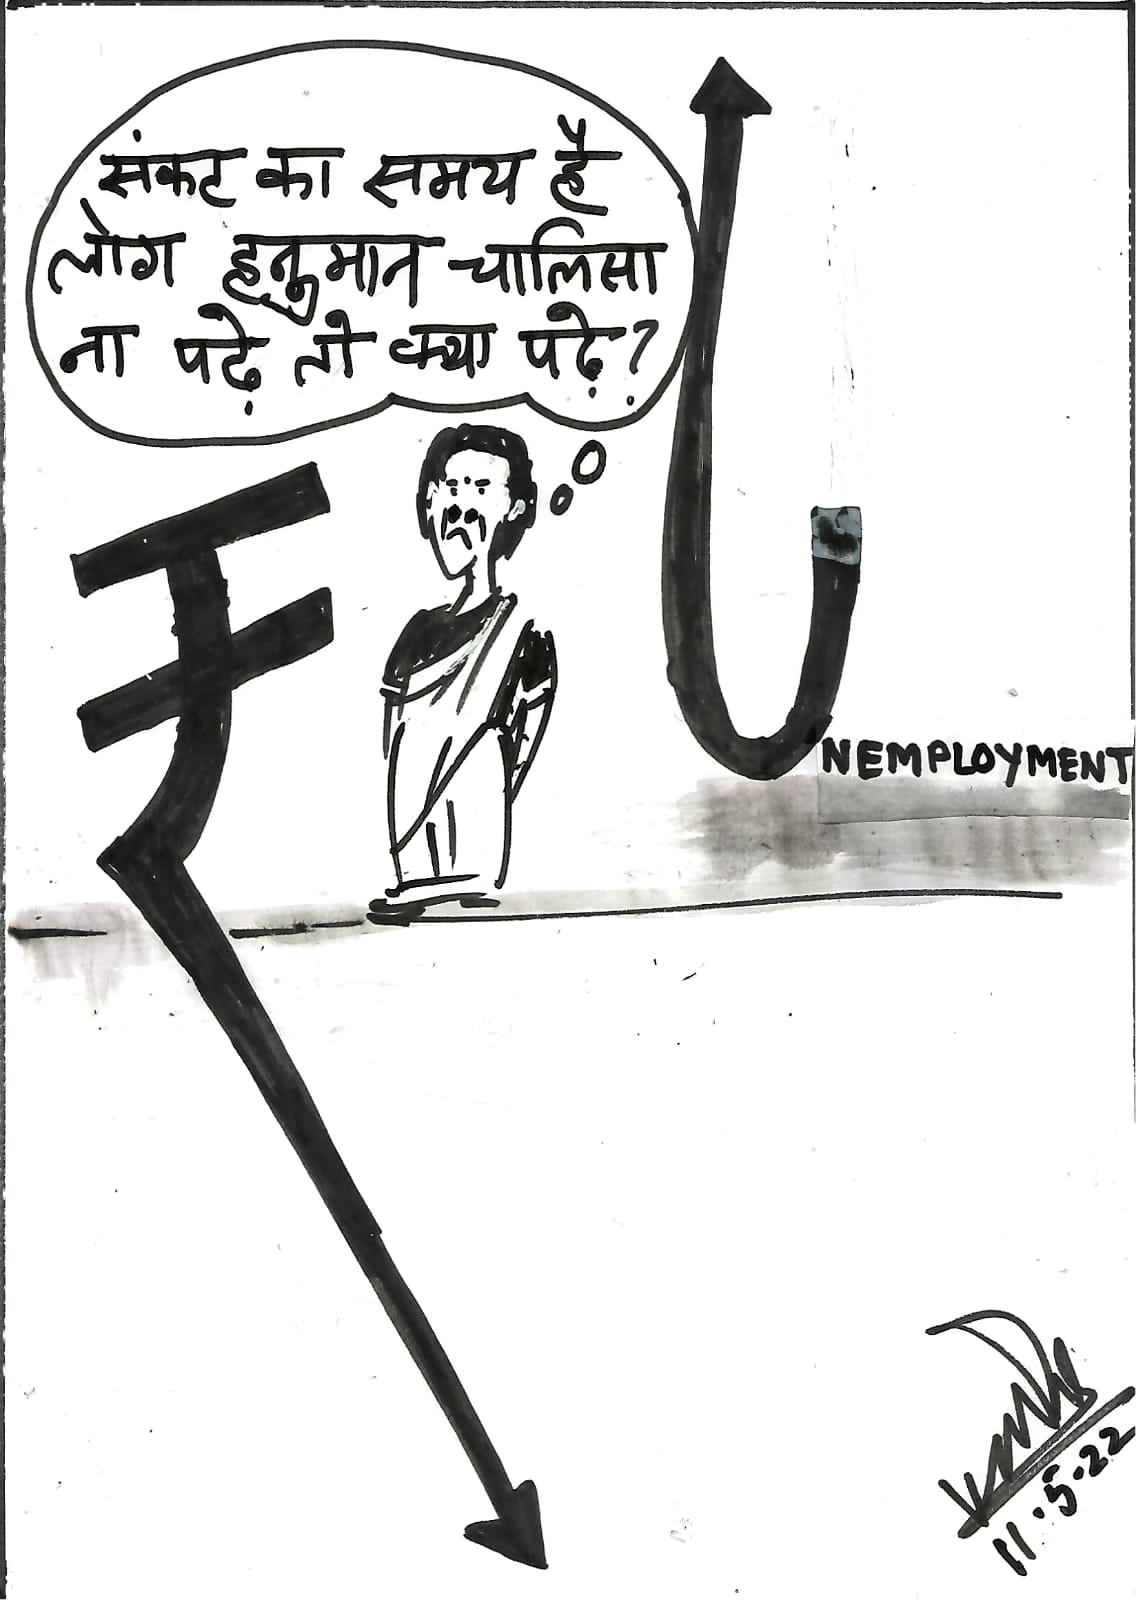 संकट का समय है
लोग हनुमान चालिसा
ना पढ़े तो क्या पढ़े?
₹
UNEMPLOYMENT
11.5.22